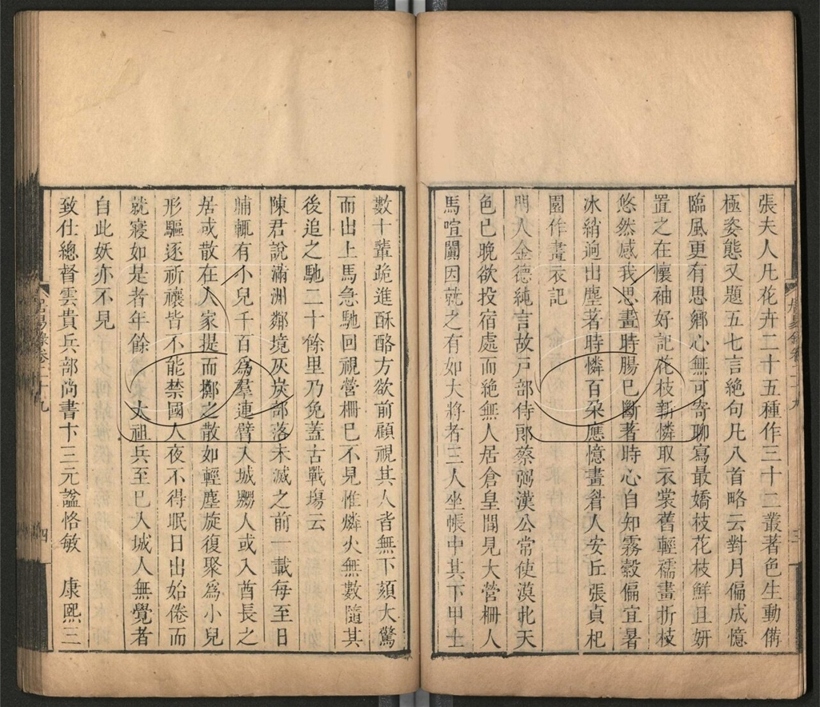 張夫人凡花卉二十五種作三十二叢著色生動備
極姿態又題五七言絶句凡八首略云對月偏成憶
臨風更有思鄉心無可寄聊寫最嬌枝花枝鮮且妍
置之在懷袖好記花枝新憐取衣裳舊輕襦畫折枝
悠然感我思畫時腸已斷著時心自知霧縠偏宜暑
冰綃逈出塵著時憐百朶應憶畫眷人安丘張貞杞
園作畫衣記
門人金德純言故戸部侍郎蔡弼漢公常使漠北天
色已晚欲投宿處而絶無人居倉皇間見大營栅人
馬喧闐因就之有如大將者三人坐帳中其下甲士
數十輩跪進酥酪方欲前顧視其人者無下頦大驚
而出上馬急馳回視營栅已不見惟燐火無數隨其
後追之馳二十餘里乃免蓋古戰塲云
陳君說滿洲鄰境灰炭部落未滅之前一載每至日
晡輒有小兒千百爲羣連臂入城嬲人或入酋長之
居或散在人家提而擲之散如輕塵旋復聚爲小兒
形驅逐祈禳皆不能禁國人夜不得眠日出始倦而
就寢如是者年餘 太祖兵至已入城人無覺者
自此妖亦不見
致仕總督雲貴兵部尚書卞三元謚恪敏 康熙三
居易錄卷二十九
三
居易錄卷二十九
四